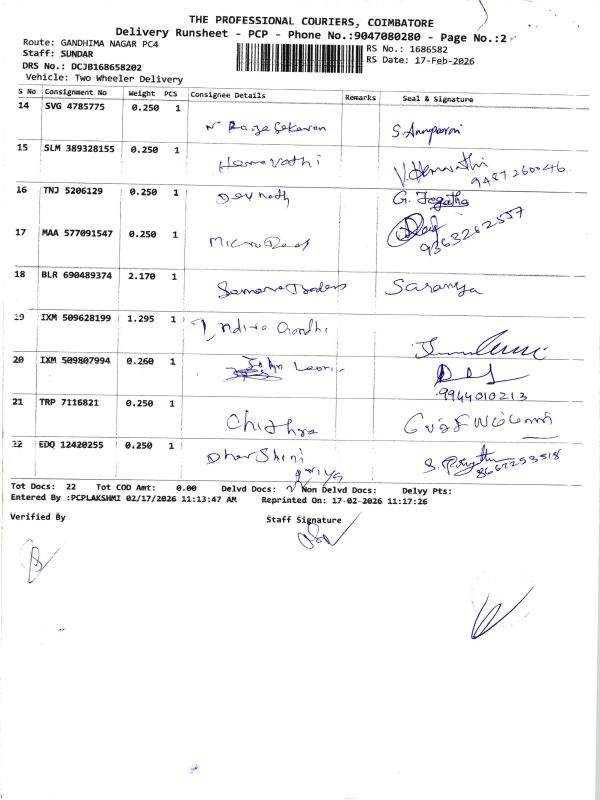 THE PROFESSIONAL COURIERS, COIMBATORE
Delivery Runsheet - PCP - Phone No.:9047080280 - Page No.:2
Route: GANDHIMA NAGAR PC4
RS No.: 1686582
Staff: SUNDAR
RS Date: 17-Feb-2026
DRS No.: DCJB168658202
Vehicle: Two Wheeler Delivery
S No Consignment No Weight PCS Consignee Details Remarks Seal & Signature
14 SVG 4785775 0.250 1
15 SLM 389328155 0.250 1
Hemavathi
9487260046
16 TNJ 5206129 0.250 1
Devnath
17 MAA 577091547 0.250 1
9363262557
18 BLR 690489374 2.170 1
Saranya
19 IXM 509628199 1.295 1
Indira Gandhi
20 IXM 509807994 0.260 1
John
9944010213
21 TRP 7116821 0.250 1
Chithra
22 EDQ 12420255 0.250 1
DharShini
Priya
8667253518
Tot Docs: 22 Tot COD Amt: 0.00 Delvd Docs: Non Delvd Docs: Delvy Pts:
Entered By :PCPLAKSHMI 02/17/2026 11:13:47 AM Reprinted On: 17-02-2026 11:17:26
Verified By
Staff Signature